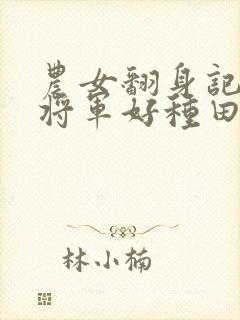 農女翻身記
將軍好種田
林小楠